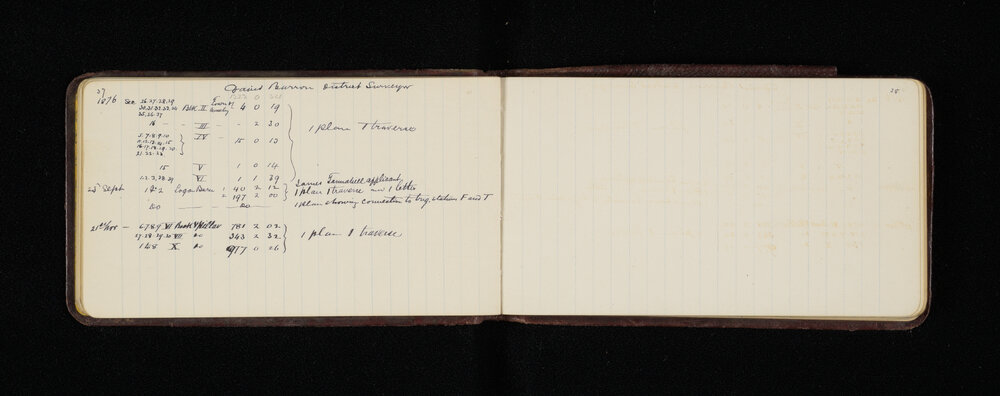 37
David Barron District Surveyor
1876 Sec 26.27.28.29
30.31.32.33.34 Blk II Town of 4 0 19
35.36.37
16 — — III — — 2 30
5.7.8.9.10 IV — 15 0 13
11.12.13.14.15
16.17.18.19.20
21.22.23
1 plan 1 traverse
15 V 1 0 14
1.2.3.28.29 VI 1 1 39
James applicant
23rd Sept 1 & 2 Logan Burn 1 40 2 12 1 plan 1 traverse and 1 letter
2 197 2 00
Do — — Do — — 1 plan showing connection to trig. station F and T
21st Nov — 6789 VI Rock & Pillar 781 2 02
27.28.29.30 VII Do 343 2 32 1 plan 1 traverse
148 X Do 917 0 26
38